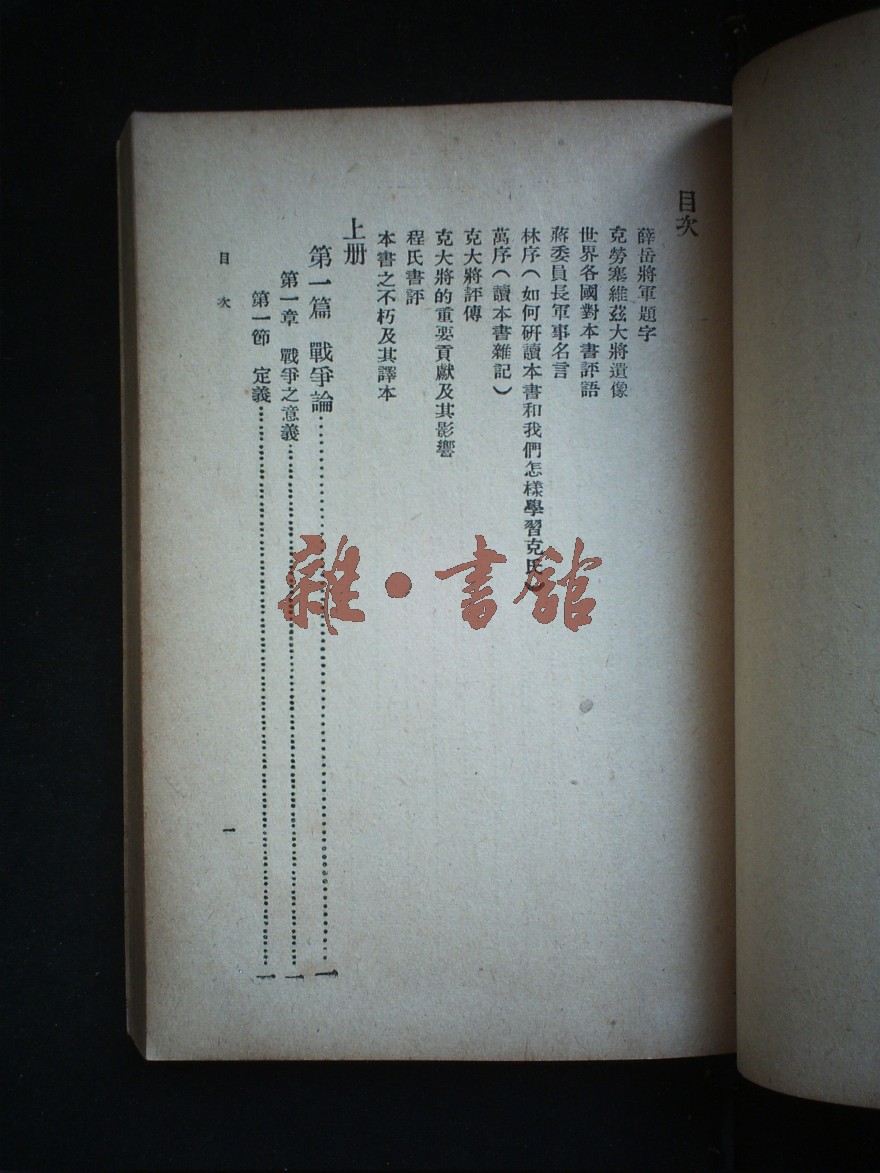 目次
薛岳將軍題字
克勞塞維茲大將遺像
世界各國對本書評語
蔣委員長軍事名言
林序（如何研讀本書和我們怎樣學習克氏）
萬序（讀本書雜記）
克大將評傳
克大將的重要貢獻及其影響
程氏書評
本書之不朽及其譯本
上册
第一篇 戰爭論…………………………一
第一章 戰爭之意義…………………………一
第一節 定義…………………………一
目次 一
雜·書館